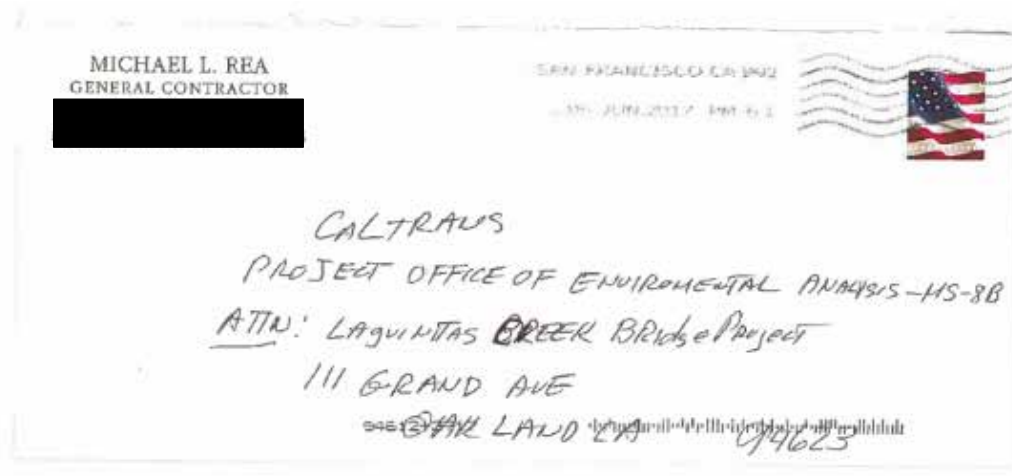 MICHAEL L. REA
GENERAL CONTRACTOR
SAN FRANCISCO CA 940
05 JUN 2017 PM 6 L
CALTRANS
PROJECT OFFICE OF ENVIROMENTAL ANALYSIS-MS-8B
ATTN: LAguiNTAS CREEK BRIdge Project
111 GRAND AVE
OAK LAND CA 94623